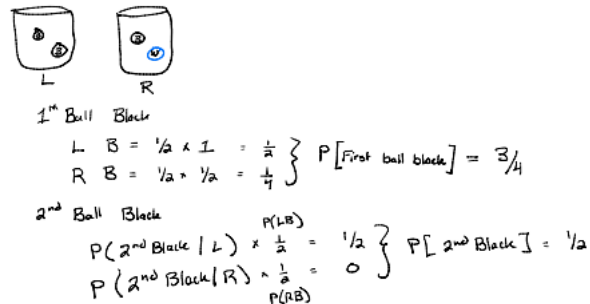 B B B W
L R
1st Ball Black
L B = 1/2 x 1 = 1/2
R B = 1/2 x 1/2 = 1/4
} P[First ball black] = 3/4
2nd Ball Black
P(LB)
P(2nd Black | L) x 1/2 = 1/2
P(2nd Black | R) x 1/2 = 0
} P[2nd Black] = 1/2
P(RB)